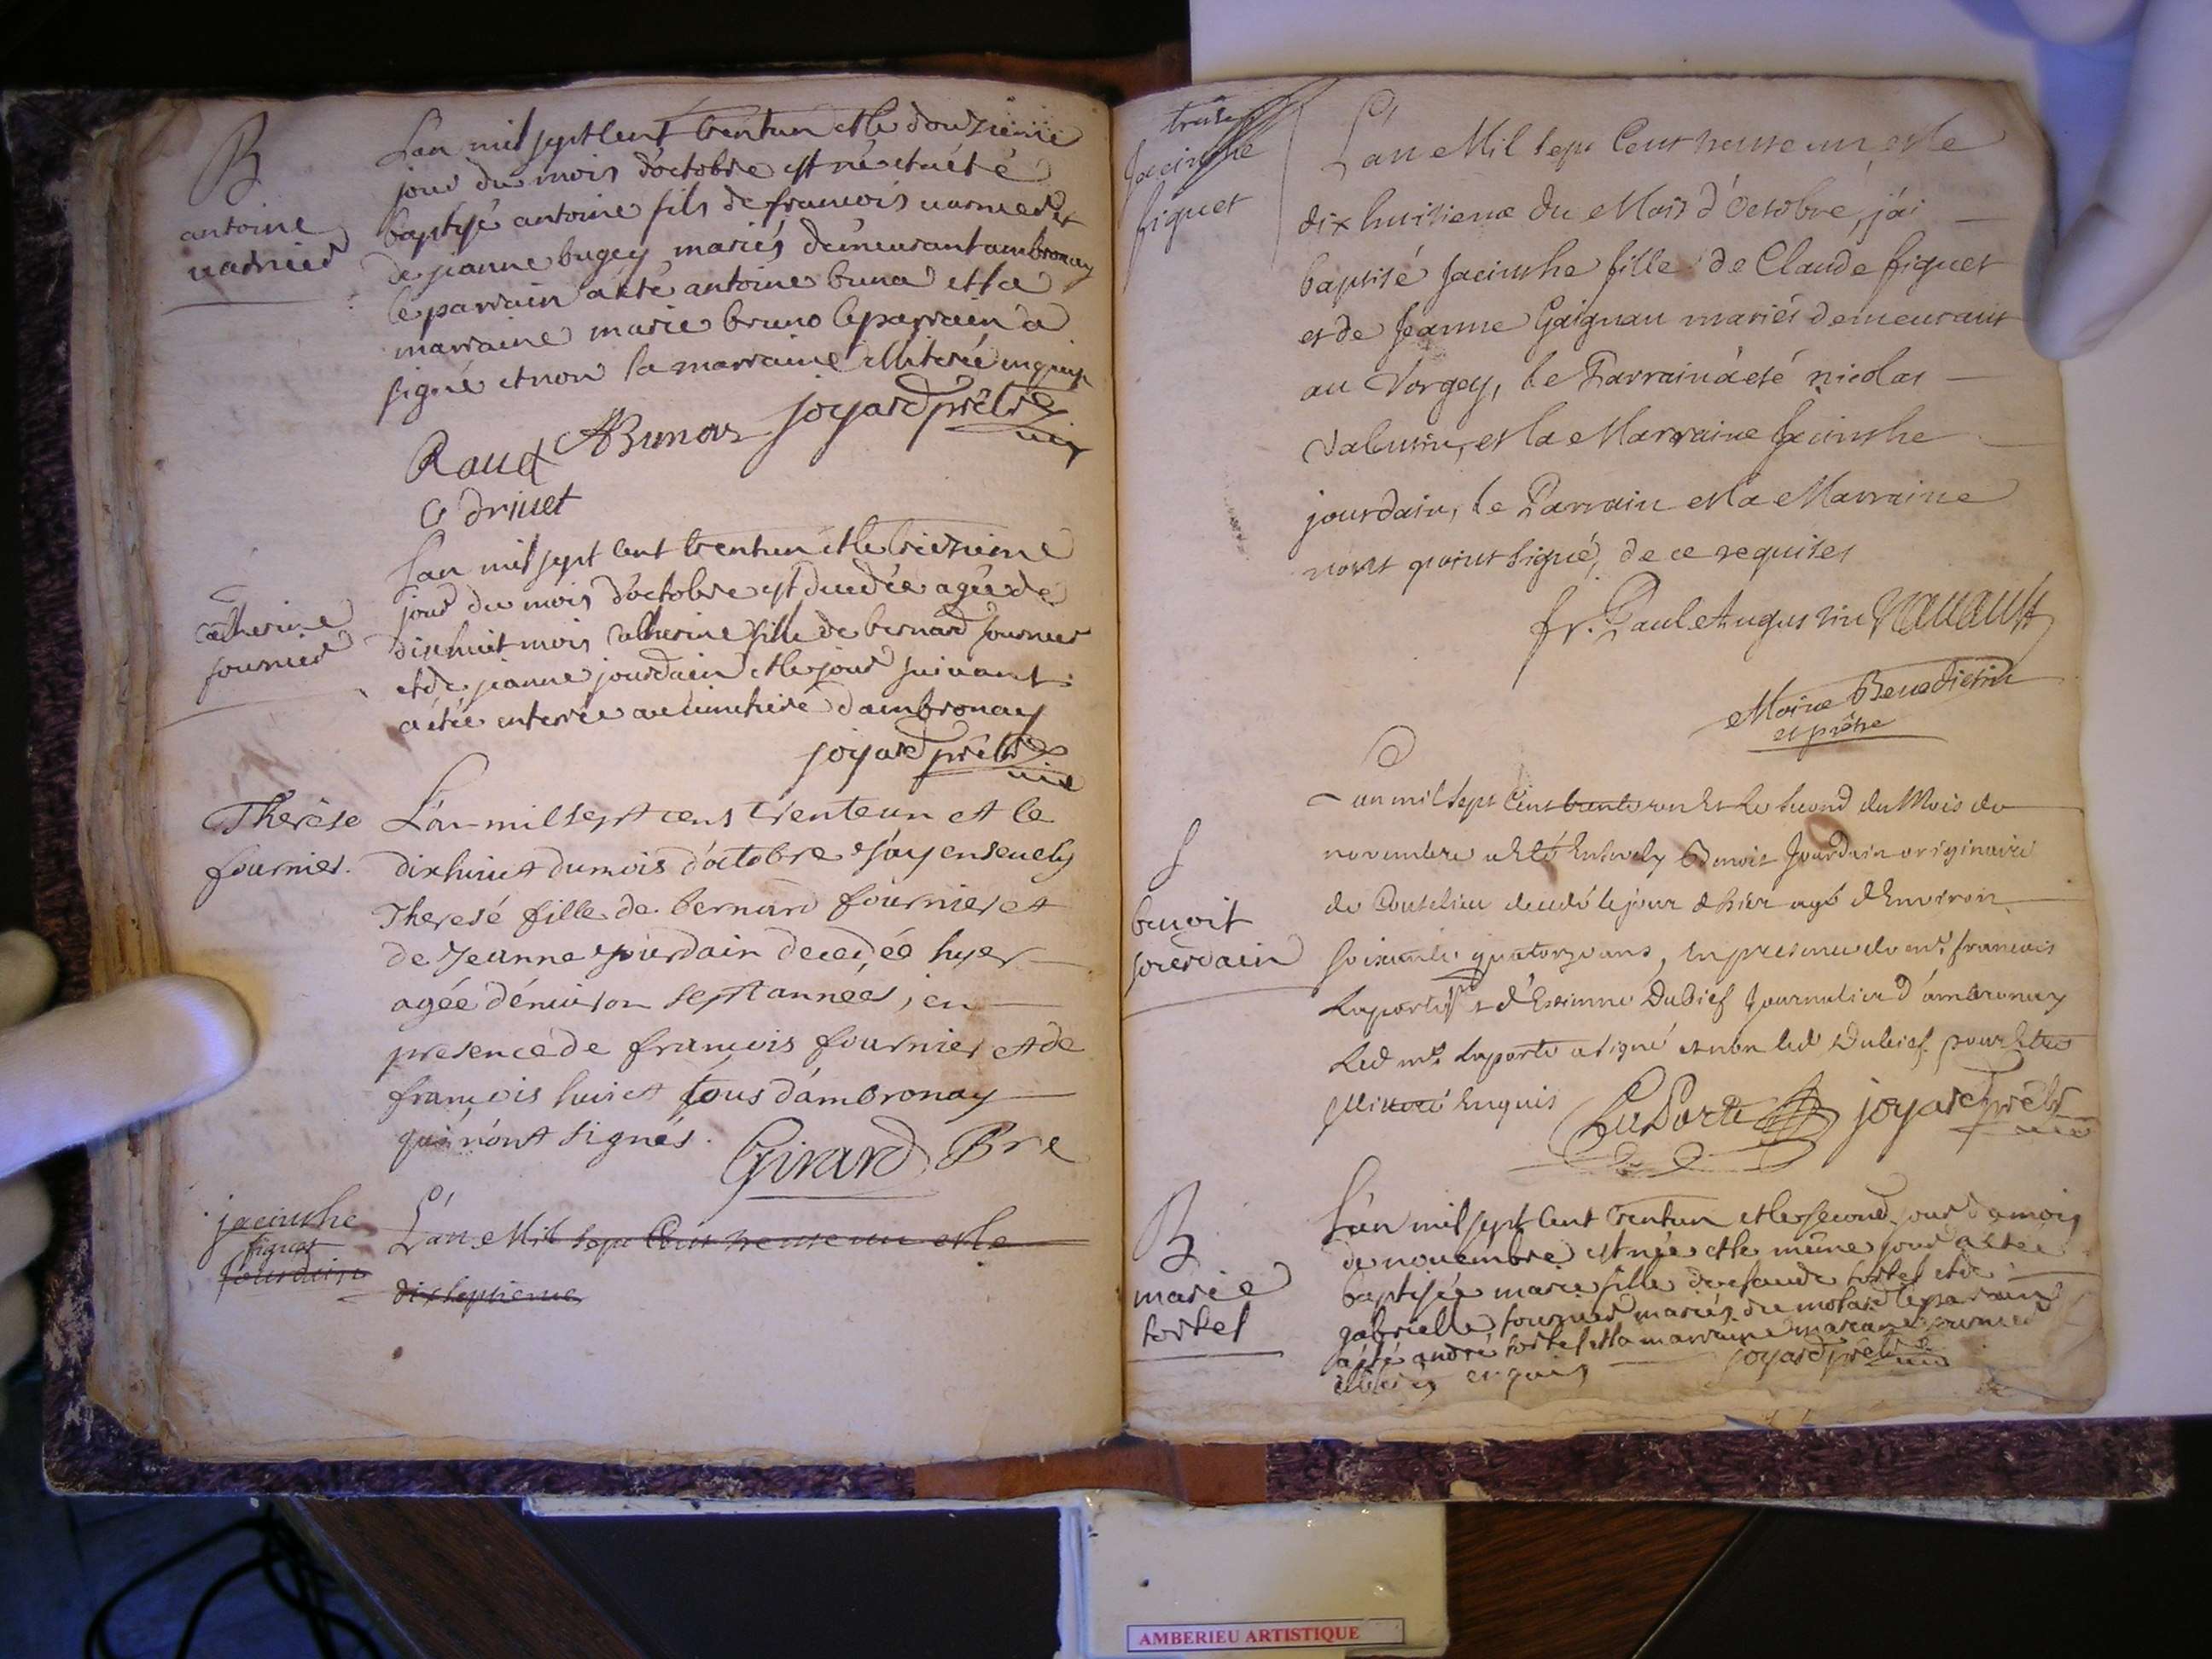 B
antoine
varnier
L'an mil sept cent trentun et le douzieme
jour du mois d'octobre est né et a été
baptisé antoine fils de francois varnier et
de jeanne bugey mariés demeurant ambronay
le parrain a été antoine bruno et la
marraine marie bruno le parrain a
signé et non la marraine illiterée enquise
ABrunos joyard prêtre
vic
Raux
C drivet
catherine
fournier
L'an mil sept cent trentun et le treizieme
jour du mois d'octobre est decedée agée de
dixhuit mois catherine fille de bernard fournier
et de jeanne jourdain et le jour suivant
a étée enterrée au cimetiere d'ambronay
joyard prêtre
vic
Therèse
fournier.
L'an mil sept cens trente un et le
dixhuict du mois d'octobre j'ay ensevely
Theresé fille de bernard fournier et
de Jeanne Jourdain decedée hyer
agée d'environ sept années, en
presence de francois fournier et de
françois huict tous d'ambronay
qui n'ont signés.
Girard Bre
jacinthe
figuet
jourdain
L'an Mil sept Cent trente un et le
dix septieme
Jacinthe
figuet
L'an Mil sept Cent trente un, et le
dix huitieme du Mois d'Octobre, j'ai
baptisé Jacinthe fille de Claude figuet
et de Jeanne Gaignau mariés demeurant
au Vorgey, le Parrain a eté nicolas
Valentin, et la Marraine Jacinthe
jourdain, le Parrain et la Marraine
n'ont point signé, de ce requises
fr. Paul Augustin
Moine Benedictin
et prêtre
S
benoit
jourdain
L'an mil sept Cent trente un Et le second du Mois de
novembre a Eté Ensevely Benoit Jourdain originaire
de decedé le jour d hier agé d'Environ
soixante quatorze ans, En presence de mr. francois
Laporte et d'Estienne Dubief Journalier d'ambronay
Led mr. Laporte a signé et non led Dubief pour Etre
illiteré Enquis
LaPorte joyard prêtre
vic
B
marie
tortel
L'an mil sept cent trentun et le second jour du mois
de novembre est née et le même jour a étée
baptisée marie fille de claude tortel et de
gabrielle fournier mariés du molard le parrain
a été andré tortel et la marraine mariane fournier
illiterés enquis joyard prêtre
vic
AMBERIEU ARTISTIQUE